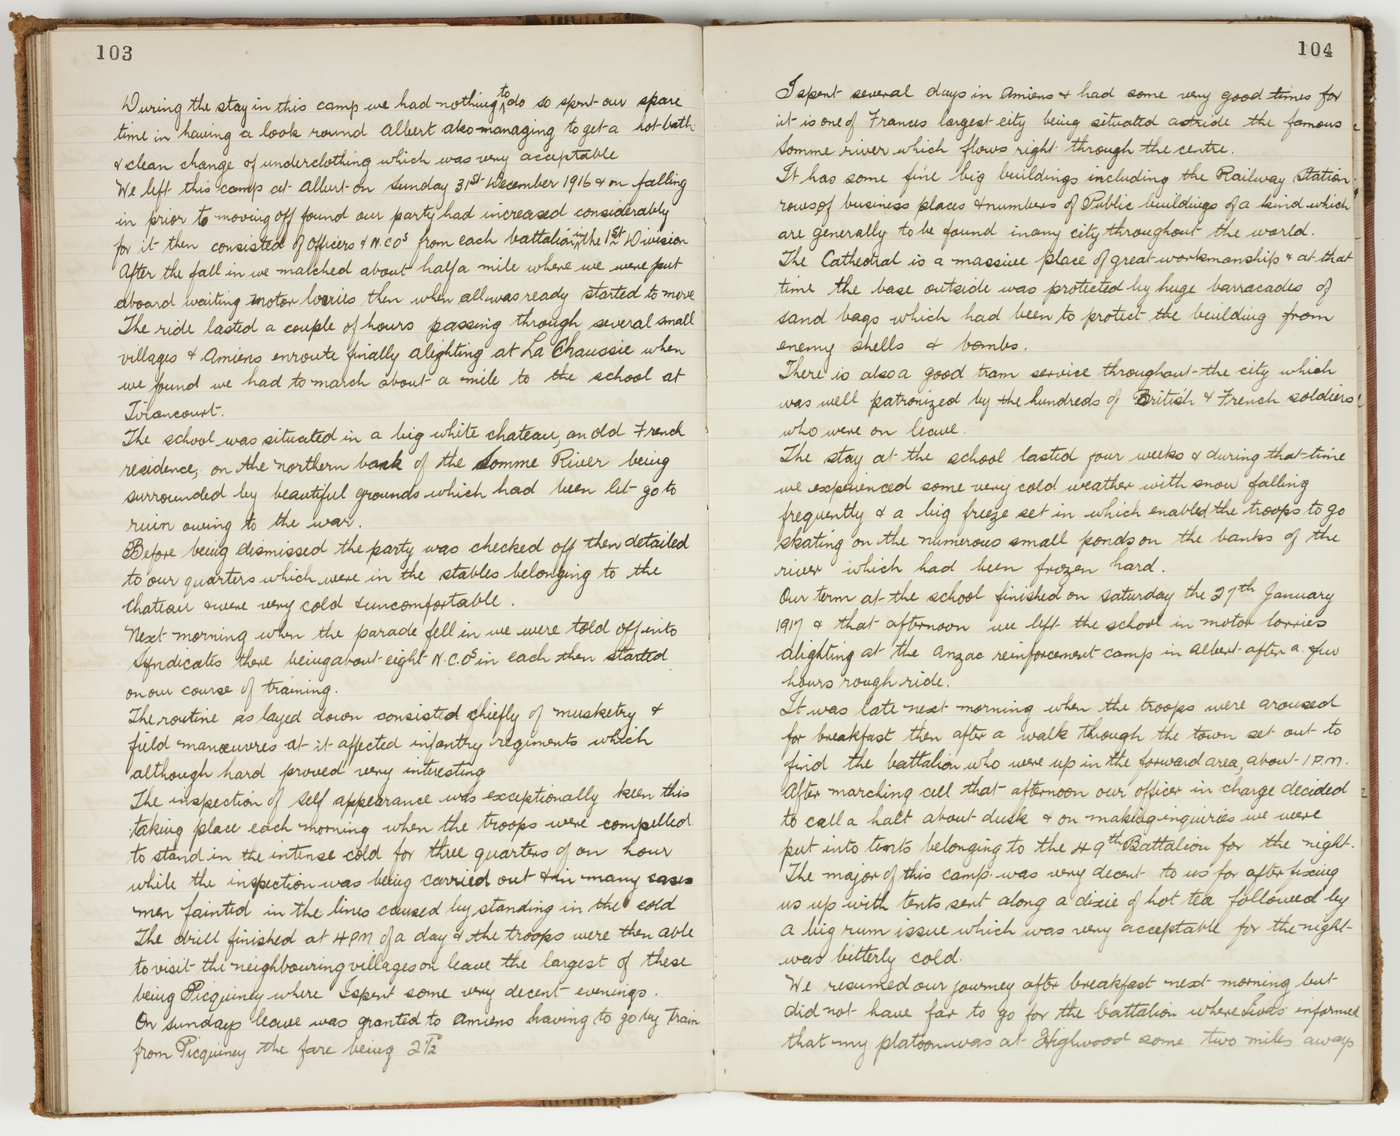 103
During the stay in this camp we had nothing to do so spent our spare
time in having a look round Albert also managing to get a hot bath
& clean change of underclothing which was very acceptable
We left this camp at Albert on Sunday 31st December 1916 & on falling
in prior to moving off found our party had increased considerably
for it then consisted of Officers & N.C.Os from each battalion in the 1st Division
After the fall in we matched about half a mile where we were put
aboard waiting motor lorries then when all was ready started to move
The ride lasted a couple of hours passing through several small
villages & Amiens enroute finally alighting at La Chaussie when
we found we had to march about a mile to the school at
Tirancourt.
The school was situated in a big white chateau, an old French
residence, on the northern bank of the Somme River being
surrounded by beautiful grounds which had been let go to
ruin owing to the war.
Before being dismissed the party was checked off then detailed
to our quarters which were in the stables belonging to the
Chateau & were very cold & uncomfortable.
Next morning when the parade fell in we were told off into
Syndicates there being about eight N.C.Os in each then started
on our course of training.
The routine as layed down consisted chiefly of musketry &
field manœuvres at it affected infantry regiments which
although hard proved very interesting
The inspection of self appearance was exceptionally keen this
taking place each morning when the troops were compelled
to stand in the intense cold for three quarters of an hour
while the inspection was being carried out & in many cases
men fainted in the lines caused by standing in the cold
The drill finished at 4 PM of a day & the troops were then able
to visit the neighbouring villages on leave the largest of these
being Picquiney where I spent some very decent evenings.
On sundays leave was granted to Amiens having to go by Train
from Picquiney the fare being
104
I spent several days in Amiens & had some very good times for
it is one of Frances largest city being situated astride the famous
Somme river which flows right through the centre.
It has some fine big buildings including the Railway Station
rows of business places & numbers of Public buildings of a kind which
are generally to be found in any city throughout the world.
The Cathedral is a massive place of great workmanship & at that
time the base outside was protected by huge barracades of
sand bags which had been to protect the building from
enemy shells & bombs.
There is also a good tram service throughout the city which
was well patronized by the hundreds of British & French soldiers
who were on leave.
The stay at the school lasted four weeks & during that time
we experienced some very cold weather with snow falling
frequently & a big freeze set in which enabled the troops to go
skating on the numerous small ponds on the banks of the
river which had been frozen hard.
Our term at the school finished on saturday the 27th January
1917 & that afternoon we left the school in motor lorries
alighting at the Anzac reinforcement camp in Albert after a few
hours rough ride.
It was late next morning when the troops were aroused
for breakfast then after a walk through the town set out to
find the battalion who were up in the forward area, about 1 P.M.
After marching all that afternoon our officer in charge decided
to call a halt about dusk & on making inquiries we were
put into tents belonging to the 49th Battalion for the night.
The major of this camp was very decent to us for after fixing
us up with tents sent along a dixie of hot tea followed by
a big rum issue which was very acceptable for the night
was bitterly cold.
We resumed our journey after breakfast next morning but
did not have far to go for the battalion where I was informed
that my platoon was at Highwood some two miles away